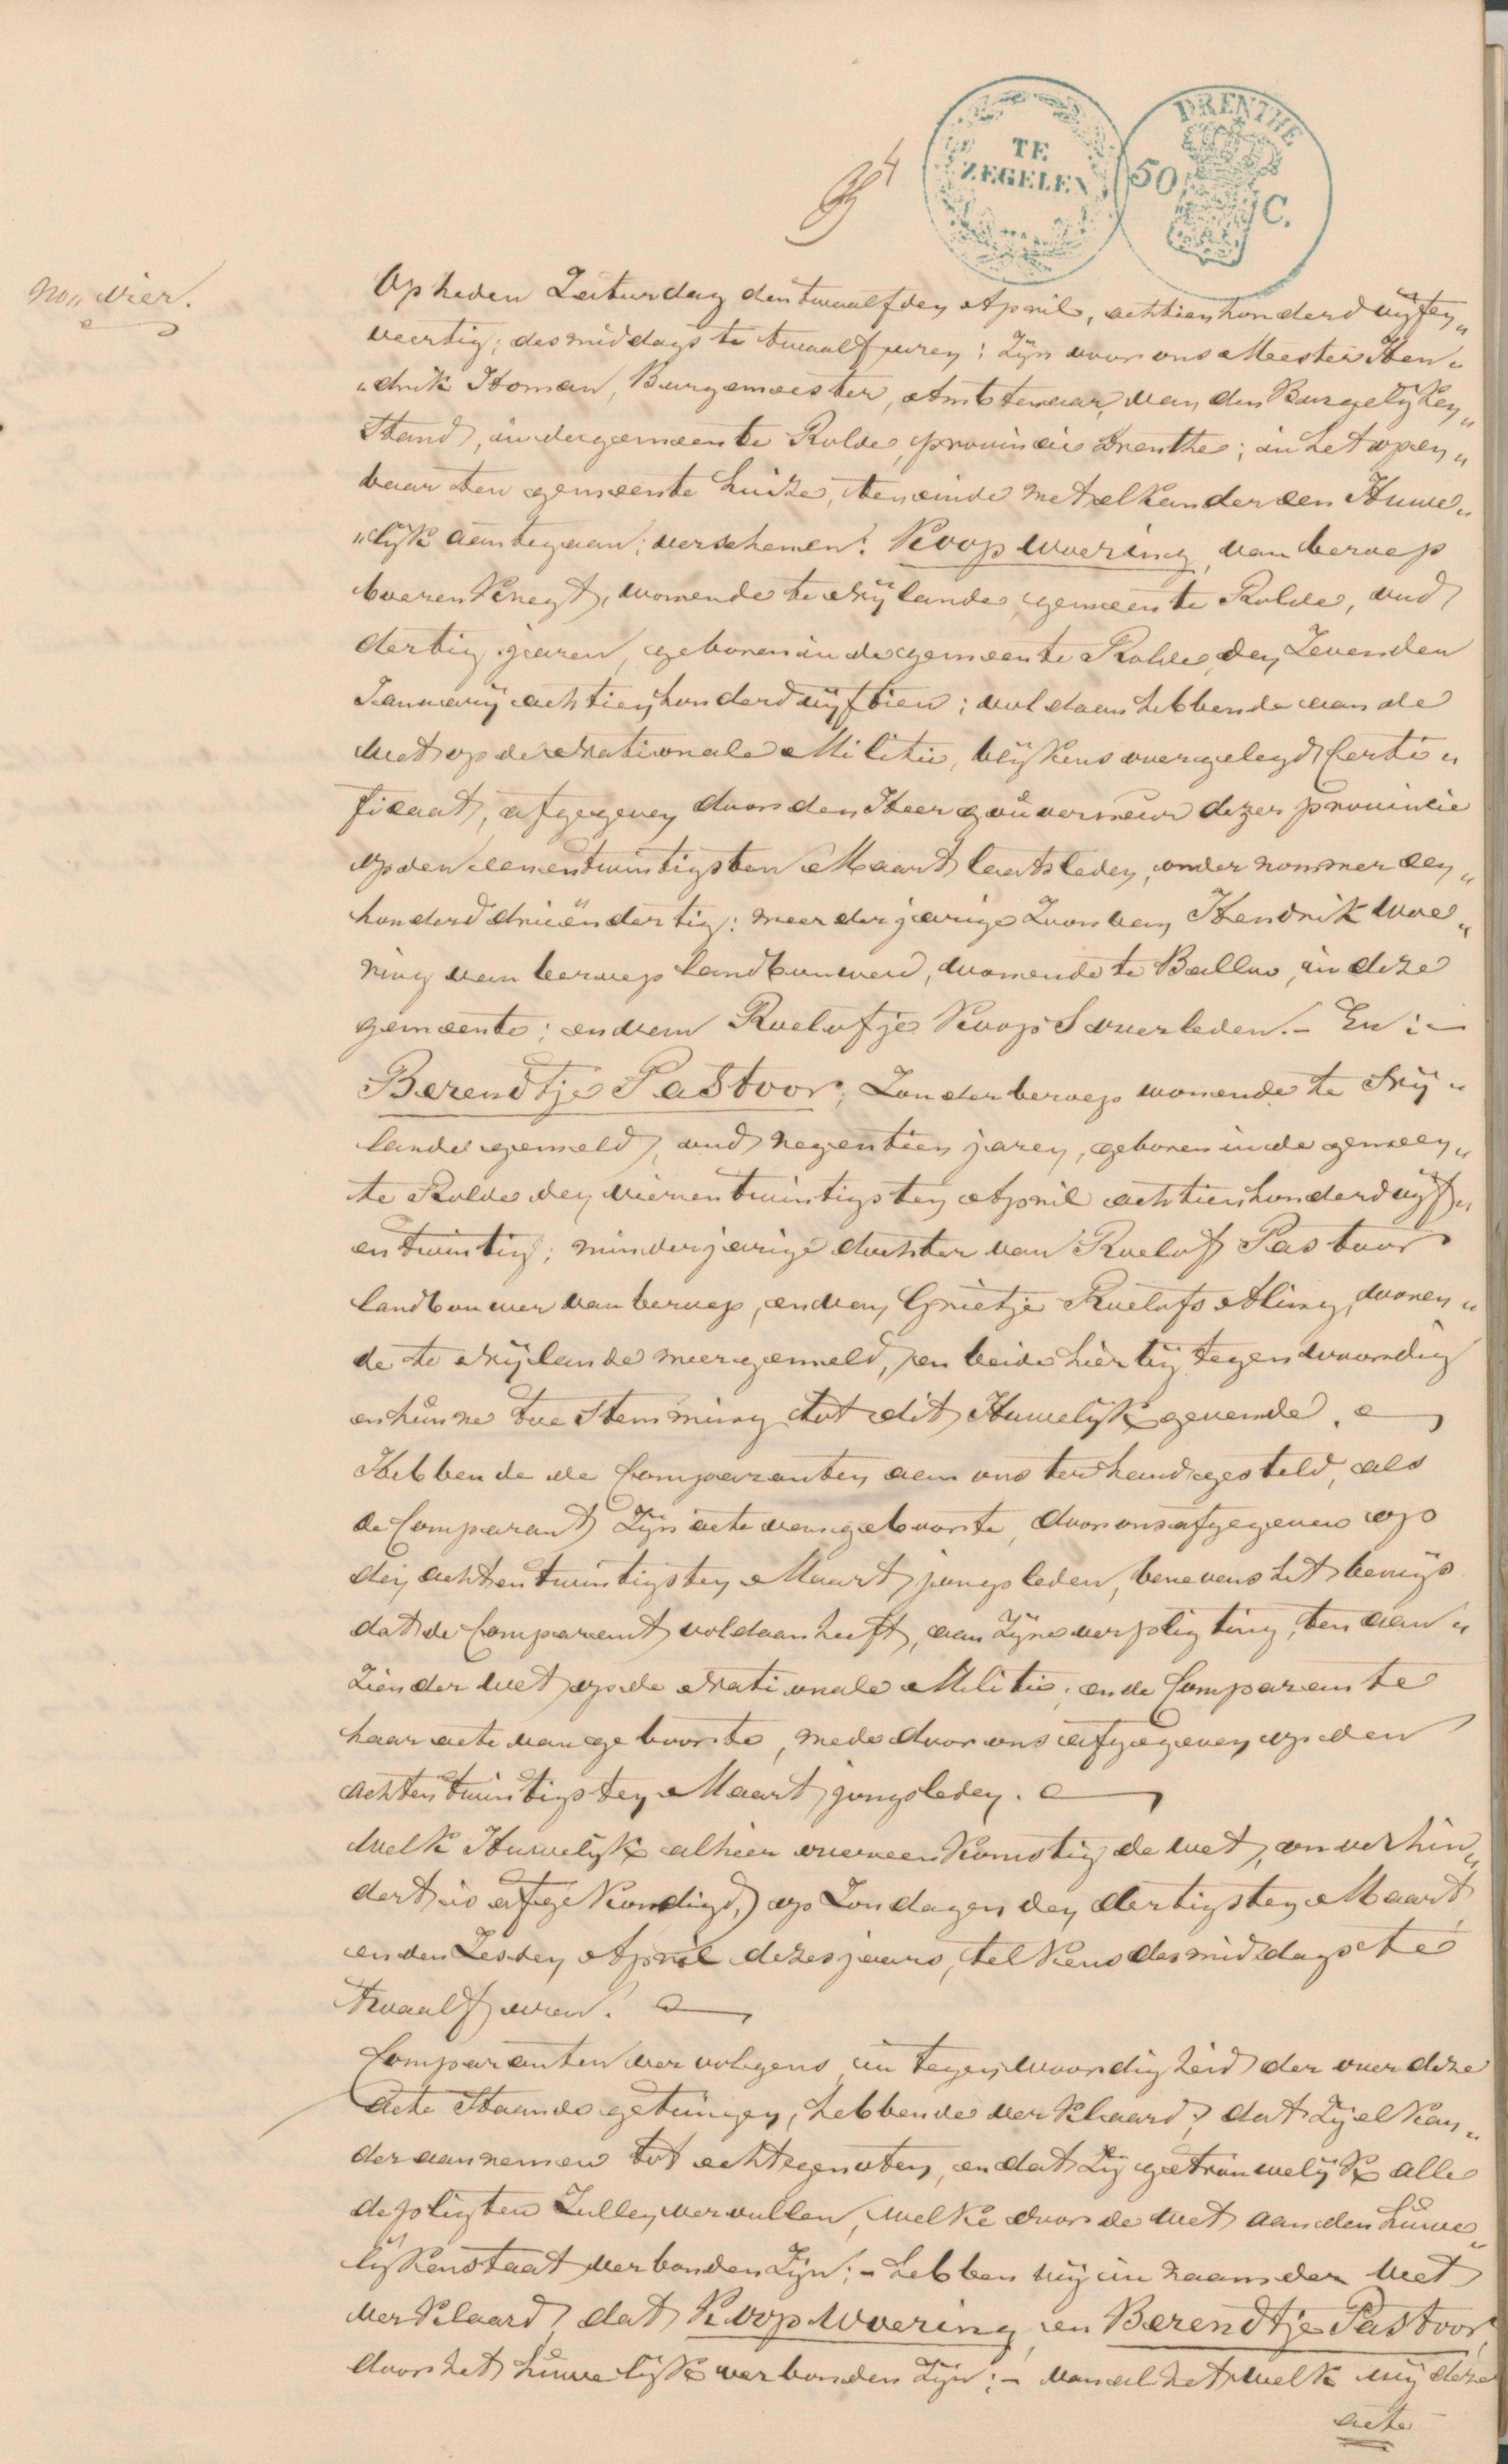 4
TE
ZEGELEN
DRENTHE
50 C.
No„ vier.
Op heden Zaturdag den twaalfden April, achttienhonderd vijfen„
veertig; des middags te twaalf uren; Zijn voor ons Meester Hen„
„drik Homan, Burgemeester, Ambtenaar van den Burgelijken„
Stand, in de gemeente Rolde, provincie Drenthe; in het open„
baar ten gemeente huize, ten einde met elkander een Huwe„
„lijk aantegaan; verschenen: Koop Woering, van beroep
boeren Knegt, wonende te Nijlande, gemeente Rolde, oud
dertig jaren, geboren in de gemeente Rolde, den Zevenden
Januarij achttienhonderd vijftien; voldaan hebbende aan de
Wet op de Nationale Militie, blijkens overgelegd Certi„
ficaat, afgegeven door den Heer gouverneur dezer provincie
op den eenentwintigsten Maart laatsleden, onder nommer een„
honderd drieëndertig: meerderjarige Zoon van Hendrik Woe„
ring van beroep landbouwer, wonende te Balloo, in deze
gemeente; en van Roelofje Koops overleden. - En: -
Berendtje Pastoor, Zonder beroep wonende te Nij„
lande gemeld, oud negentien jaren, geboren in de gemeen„
te Rolde den vierentwintigsten April achttienhonderd vijf„
en twintig; minderjarige dochter van Roelof Pastoor
landbouwer van beroep, en van Grietje Roelofs Aling, wonen„
de te Nijlande meergemeld, en beide hierbij tegenwoordig
en hunne toestemming tot dit Huwelijk gevende.
Hebbende de Comparanten aan ons ter hand gesteld, als
de Comparant Zijn acte van geboorte, door ons afgegeven op
den achtentwintigsten Maart jongsleden, benevens het bewijs
dat de Comparant voldaan heeft, aan Zijne verpligting, ten aan„
Zien der Wet op de Nationale Militie; en de Comparante
haar acte van geboorte, mede door ons afgegeven op den
achtentwintigsten Maart jongsleden.
Welk Huwelijk alhier overeenkomstig de wet, onverhin„
dert is afgekondigd, op Zondagen den dertigsten Maart
en den Zesden April dezes jaars, telkens des middags te
twaalf uren.
Comparanten vervolgens in tegenwoordigheid der onder deze
Acte Staande getuigen, hebbende verklaard, dat Zij elkan„
der aannemen tot echtgenoten, en dat Zij getrouwelijk alle
de pligten Zullen vervullen, welke door de wet aan den huwe„
lijkenstaat verbonden Zijn; - hebben wij in naam der Wet
verklaard, dat Koop Woering en Berendtje Pastoor,
door het huwelijk verbonden Zijn; - van al hetwelk wij deze
acte